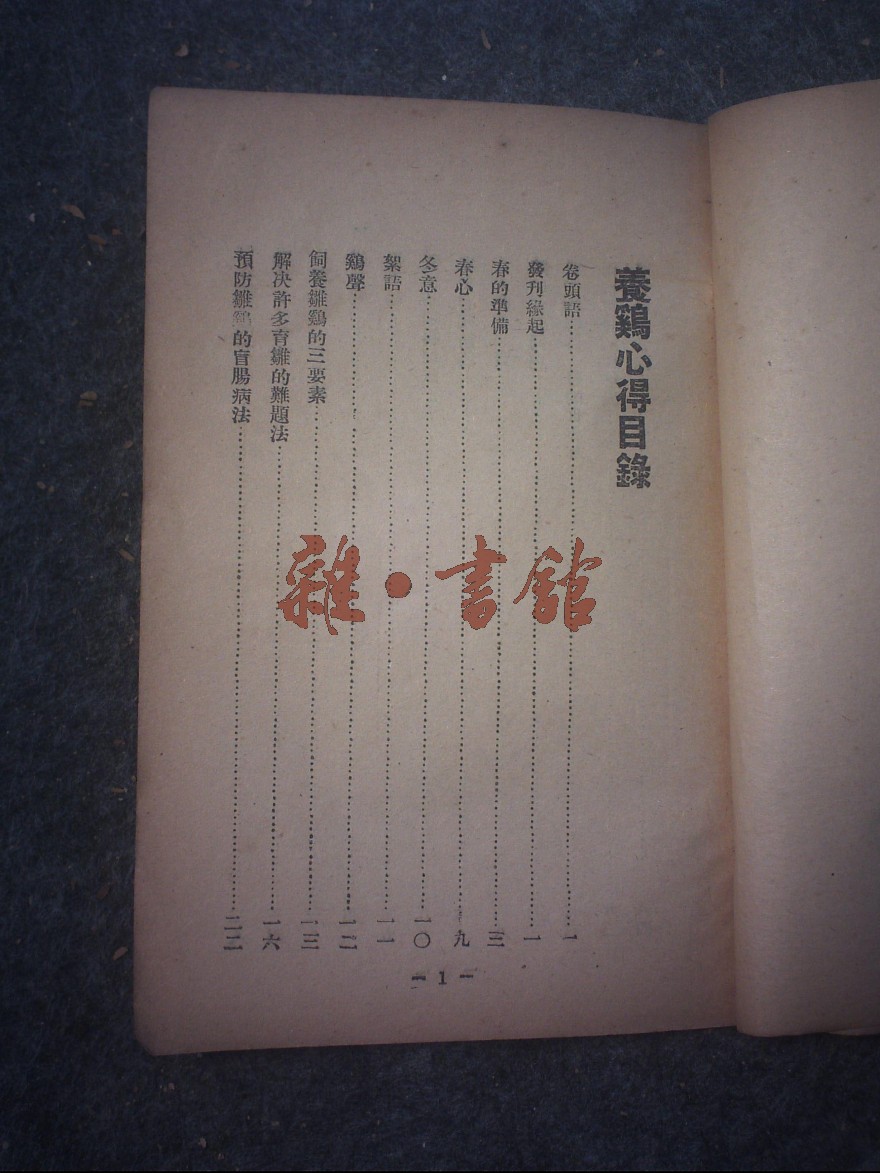 養鷄心得目錄
卷頭語……………………一
發刋緣起……………………一
春的準備……………………三
春心……………………九
冬意……………………一〇
絮語……………………一一
鷄聲……………………一二
飼養雛鷄的三要素……………………一三
解决許多育雛的難題法……………………一六
預防雛鷄的盲腸病法……………………二二
— 1 —
雜·書館